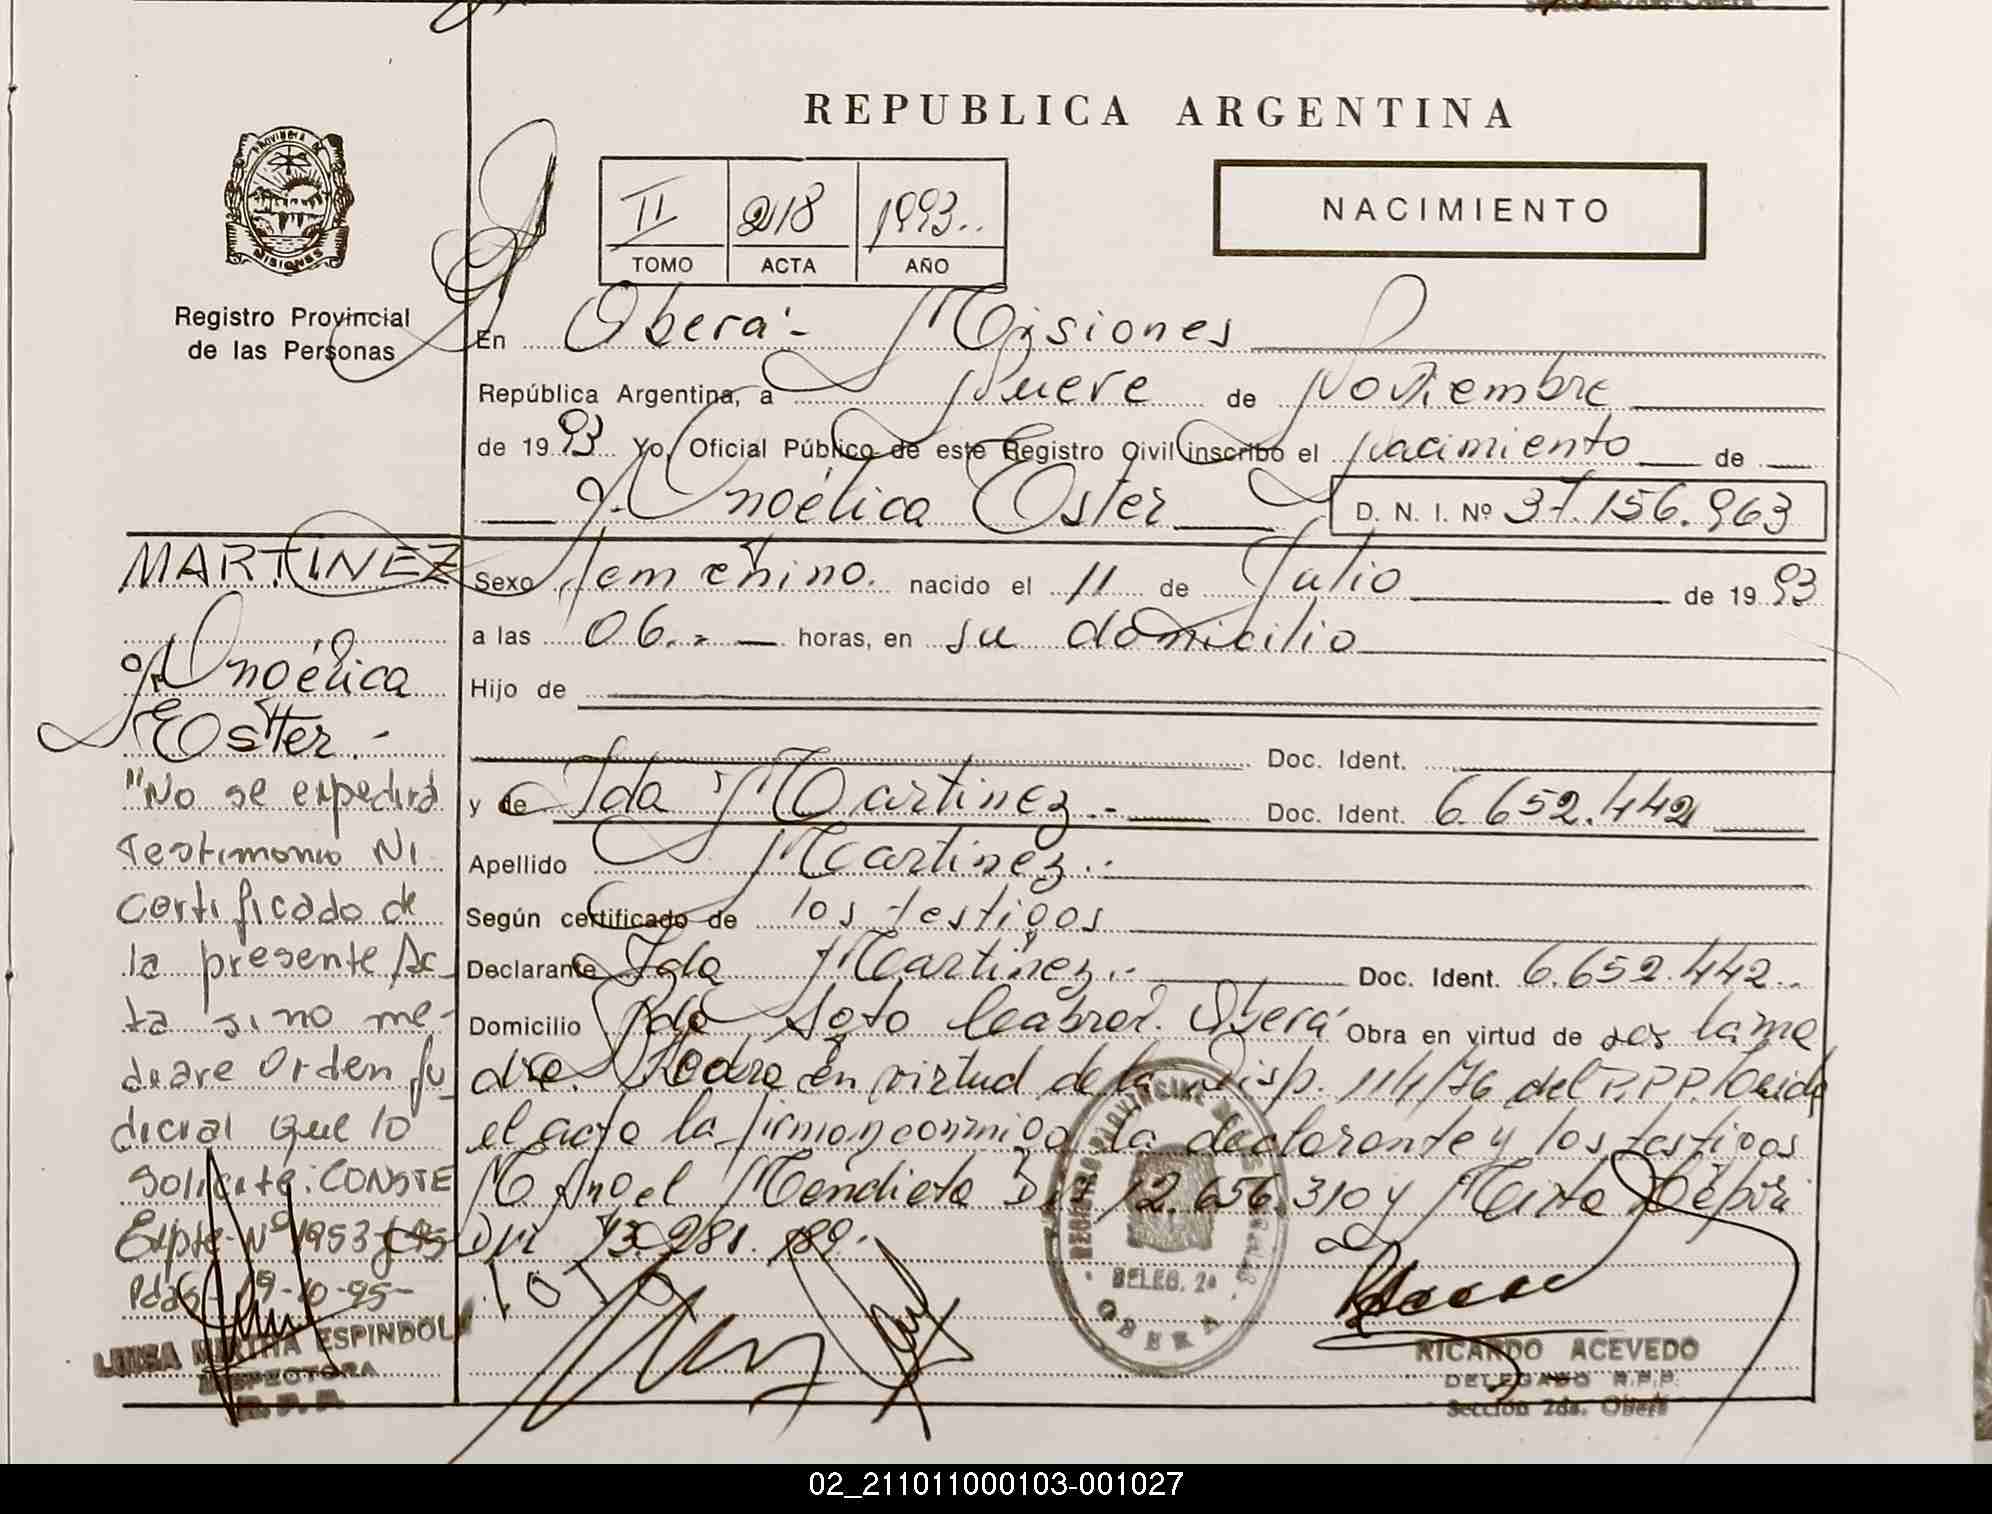 REPUBLICA ARGENTINA
PROVINCIA DE
MISIONES
Registro Provincial
de las Personas
II 218 1993..
TOMO ACTA AÑO
NACIMIENTO
En Oberá - Misiones
República Argentina, a Nueve de Noviembre
de 1993 Yo, Oficial Público de este Registro Civil inscribo el nacimiento de
Angélica Ester D. N. I. Nº 37.156.963
Sexo femenino. nacido el 11 de Julio de 1993
a las 06.- horas, en su domicilio
Hijo de
Doc. Ident.
y de Ida Martinez.- Doc. Ident. 6.652.442
Apellido Martinez.-
Según certificado de los testigos
Declarante Ida Martinez.- Doc. Ident. 6.652.442..
Domicilio Pda Soto Cabrot. Oberá Obra en virtud de ser la ma
dre. en virtud de la Disp. 111/76 del R.P.P. Leida
el acta la firman conmigo la declarante y los testigos
Mendieta 12.656.310 y Mirta
Dni 13.281.
MARTINEZ
Angélica
Ester.-
"No se expedirá
Testimonio Ni
Certificado de
la presente Ac-
ta si no me-
deare Orden Ju
dicial que lo
Solicite: CONSTE
Expte Nº 1953
Pdas- 19-10-95-
MIRTHA ESPINDOLA
INSPECTORA
R. P. P.
REGISTRO PROVINCIAL DE LAS PERSONAS
DELEG. 2a
OBERA
RICARDO ACEVEDO
DELEGADO R.P.P.
Sección 2da. Oberá
02_211011000103-001027